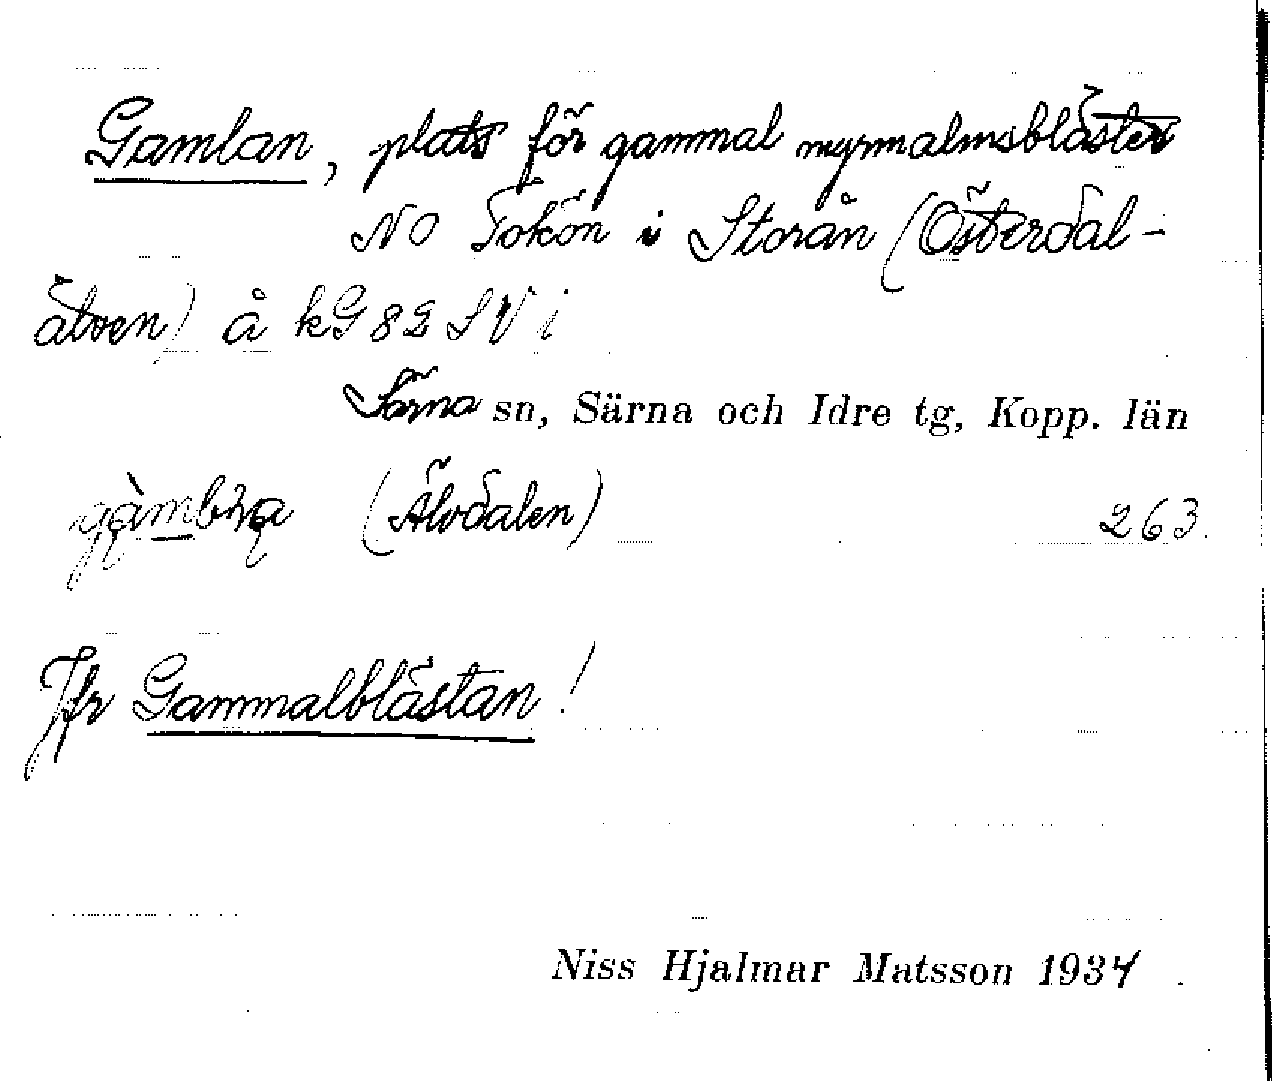 Gamlan, plats för gammal myrmalmsbläster
NO Tokön i Storån (Österdal-
älven) å kG 82 SV i
Särna sn, Särna och Idre tg, Kopp. län
(Älvdalen) 263.
Jfr Gammalblästan!
Niss Hjalmar Matsson 1937.